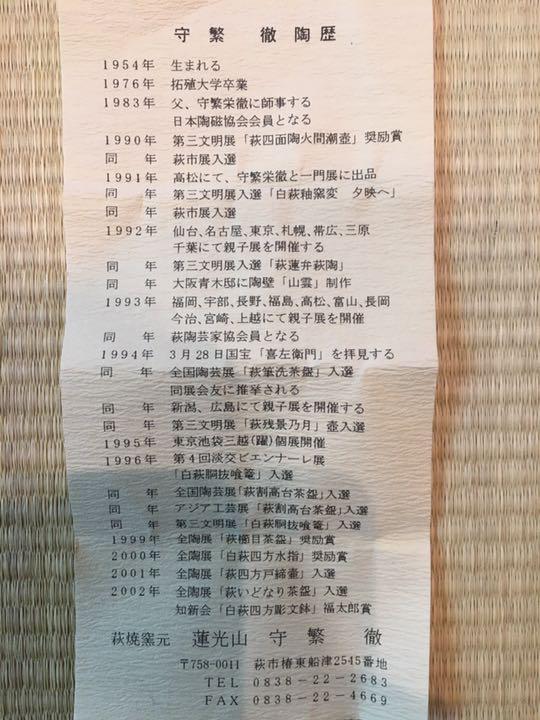 守繁 徹陶歴
1954年 生まれる
1976年 拓殖大学卒業
1983年 父、守繁栄徹に師事する
日本陶磁協会会員となる
1990年 第三文明展「萩四面陶火間潮壺」奨励賞
同 年 萩市展入選
1991年 高松にて、守繁栄徹と一門展に出品
同 年 第三文明展入選「白萩釉窯変 夕映へ」
同 年 萩市展入選
1992年 仙台、名古屋、東京、札幌、帯広、三原
千葉にて親子展を開催する
同 年 第三文明展入選「萩蓮弁萩陶」
同 年 大阪青木邸に陶壁「山雲」制作
1993年 福岡、宇部、長野、福島、高松、富山、長岡
今治、宮崎、上越にて親子展を開催
同 年 萩陶芸家協会員となる
1994年 3月28日国宝「喜左衛門」を拝見する
同 年 全国陶芸展「萩筆洗茶盌」入選
同展会友に推挙される
同 年 新潟、広島にて親子展を開催する
同 年 第三文明展「萩残景乃月」壺入選
1995年 東京池袋三越(躍)個展開催
1996年 第4回淡交ビエンナーレ展
「白萩胴抜喰篭」入選
同 年 全国陶芸展「萩割高台茶盌」入選
同 年 アジア工芸展「萩割高台茶盌」入選
同 年 第三文明展「白萩胴抜喰篭」入選
1999年 全陶展「萩櫛目茶盌」奨励賞
2000年 全陶展「白萩四方水指」奨励賞
2001年 全陶展「萩四方戸締壷」入選
2002年 全陶展「萩いどなり茶盌」入選
知新会「白萩四方彫文鉢」福太郎賞
萩焼窯元 蓮光山 守繁 徹
〒758-0011 萩市椿東船津2545番地
TEL 0838-22-2683
FAX 0838-22-4669